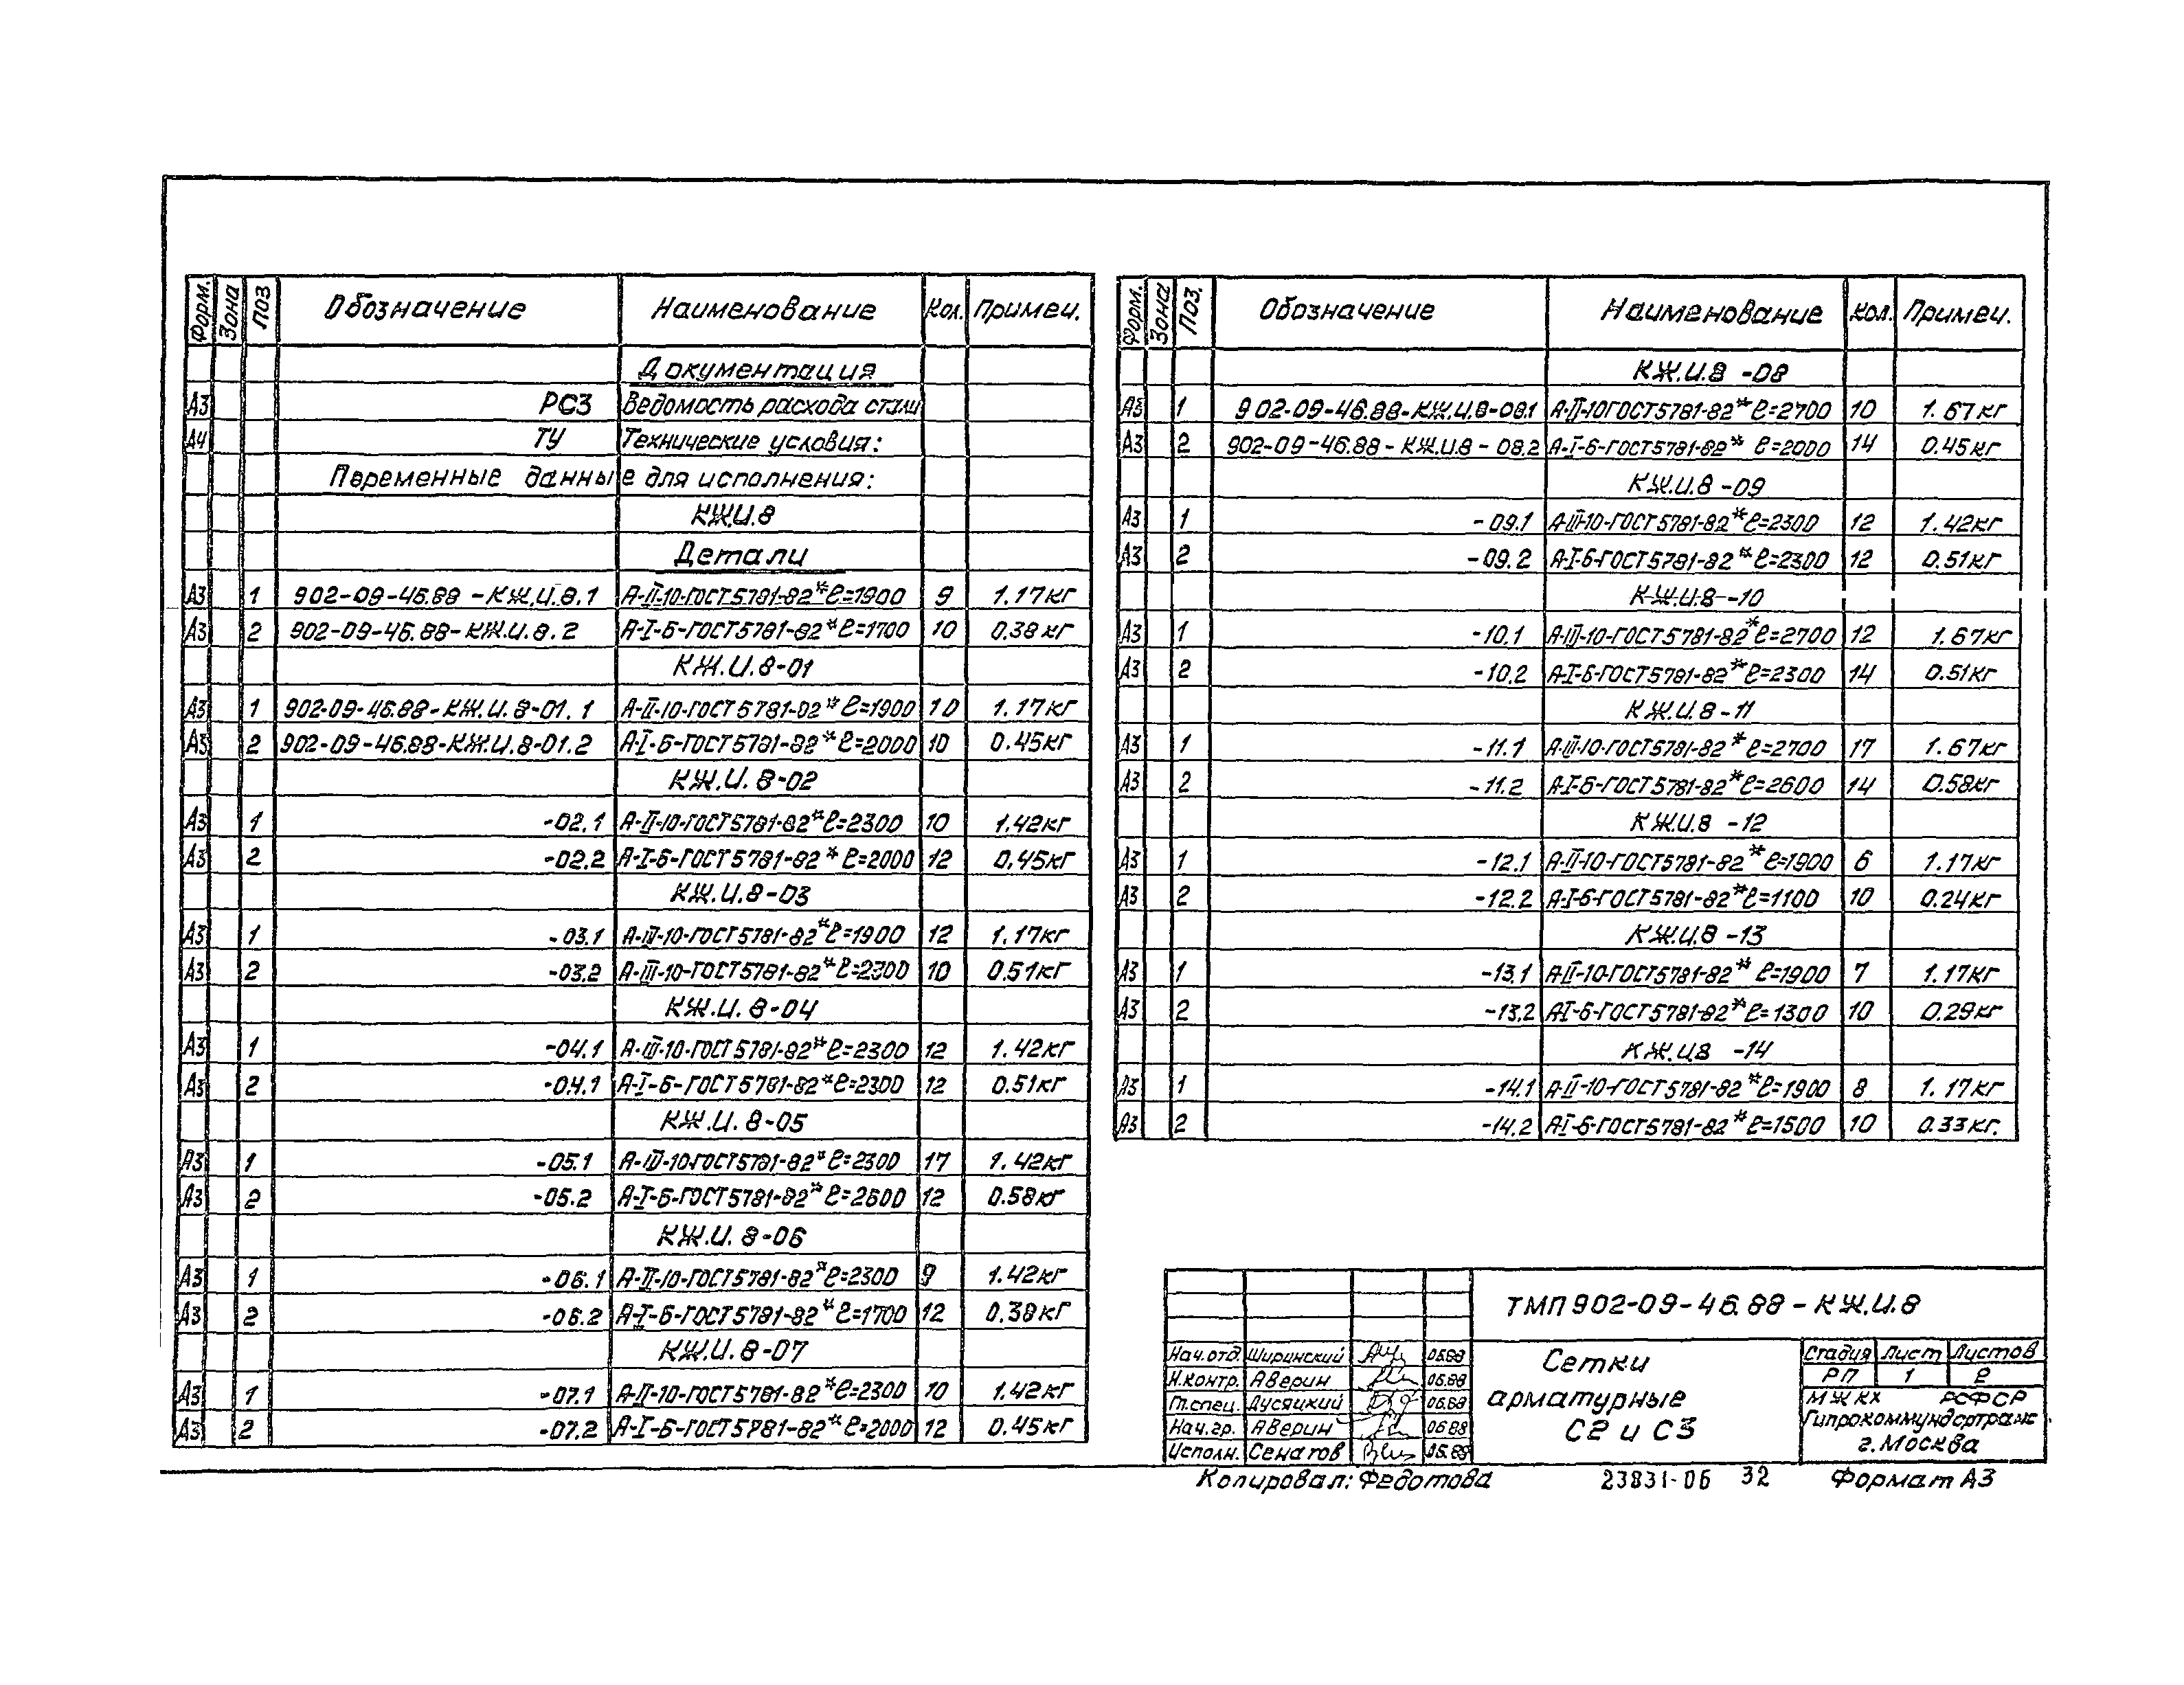 Форм. Зона Поз Обозначение Наименование Кол. Примеч.
Документация
А3 РС3 Ведомость расхода стали
А4 ТУ Технические условия:
Переменные данные для исполнения:
КЖ.И.8
Детали
А3 1 902-09-46.88-КЖ.И.8.1 А-II-10-ГОСТ5781-82* ℓ=1900 9 1.17кг
А3 2 902-09-46.88-КЖ.И.8.2 А-I-6-ГОСТ5781-82* ℓ=1700 10 0.38кг
КЖ.И.8-01
А3 1 902-09-46.88-КЖ.И.8-01.1 А-II-10-ГОСТ5781-82* ℓ=1900 10 1.17кг
А3 2 902-09-46.88-КЖ.И.8-01.2 А-I-6-ГОСТ5781-82* ℓ=2000 10 0.45кг
КЖ.И.8-02
А3 1 -02.1 А-II-10-ГОСТ5781-82* ℓ=2300 10 1.42кг
А3 2 -02.2 А-I-6-ГОСТ5781-82* ℓ=2000 12 0.45кг
КЖ.И.8-03
А3 1 -03.1 А-III-10-ГОСТ5781-82* ℓ=1900 12 1.17кг
А3 2 -03.2 А-III-10-ГОСТ5781-82* ℓ=2300 10 0.51кг
КЖ.И.8-04
А3 1 -04.1 А-III-10-ГОСТ5781-82* ℓ=2300 12 1.42кг
А3 2 -04.1 А-I-6-ГОСТ5781-82* ℓ=2300 12 0.51кг
КЖ.И.8-05
А3 1 -05.1 А-III-10-ГОСТ5781-82* ℓ=2300 17 1.42кг
А3 2 -05.2 А-I-6-ГОСТ5781-82* ℓ=2600 12 0.58кг
КЖ.И.8-06
А3 1 -06.1 А-II-10-ГОСТ5781-82* ℓ=2300 9 1.42кг
А3 2 -06.2 А-I-6-ГОСТ5781-82* ℓ=1700 12 0.38кг
КЖ.И.8-07
А3 1 -07.1 А-II-10-ГОСТ5781-82* ℓ=2300 10 1.42кг
А3 2 -07.2 А-I-6-ГОСТ5781-82* ℓ=2000 12 0.45кг
Форм. Зона Поз. Обозначение Наименование Кол. Примеч.
КЖ.И.8-08
А3 1 902-09-46.88-КЖ.И.8-08.1 А-II-10ГОСТ5781-82* ℓ=2700 10 1.67кг
А3 2 902-09-46.88-КЖ.И.8-08.2 А-I-6-ГОСТ5781-82* ℓ=2000 14 0.45кг
КЖ.И.8-09
А3 1 -09.1 А-III-10-ГОСТ5781-82* ℓ=2300 12 1.42кг
А3 2 -09.2 А-I-6-ГОСТ5781-82* ℓ=2300 12 0.51кг
КЖ.И.8-10
А3 1 -10.1 А-III-10-ГОСТ5781-82* ℓ=2700 12 1.67кг
А3 2 -10.2 А-I-6-ГОСТ5781-82* ℓ=2300 14 0.51кг
КЖ.И.8-11
А3 1 -11.1 А-III-10-ГОСТ5781-82* ℓ=2700 17 1.67кг
А3 2 -11.2 А-I-6-ГОСТ5781-82* ℓ=2600 14 0.58кг
КЖ.И.8-12
А3 1 -12.1 А-II-10-ГОСТ5781-82* ℓ=1900 6 1.17кг
А3 2 -12.2 А-I-6-ГОСТ5781-82* ℓ=1100 10 0.24кг
КЖ.И.8-13
А3 1 -13.1 А-II-10-ГОСТ5781-82* ℓ=1900 7 1.17кг
А3 2 -13.2 А-I-6-ГОСТ5781-82* ℓ=1300 10 0.29кг
КЖ.И.8-14
А3 1 -14.1 А-II-10-ГОСТ5781-82* ℓ=1900 8 1.17кг
А3 2 -14.2 А-I-6-ГОСТ5781-82* ℓ=1500 10 0.33кг.
ТМП 902-09-46.88-КЖ.И.8
Нач.отд. Ширинский 06.88
Н.контр. Аверин 06.88
Гл.спец. Дусяцкий 06.88
Нач.гр. Аверин 06.88
Исполн. Сенатов 06.88
Сетки
арматурные
С2 и С3
Стадия Лист Листов
РП 1 2
МЖКХ РСФСР
Гипрокоммундортранс
г.Москва
Копировал: Федотова 23831-06 32 Формат А3